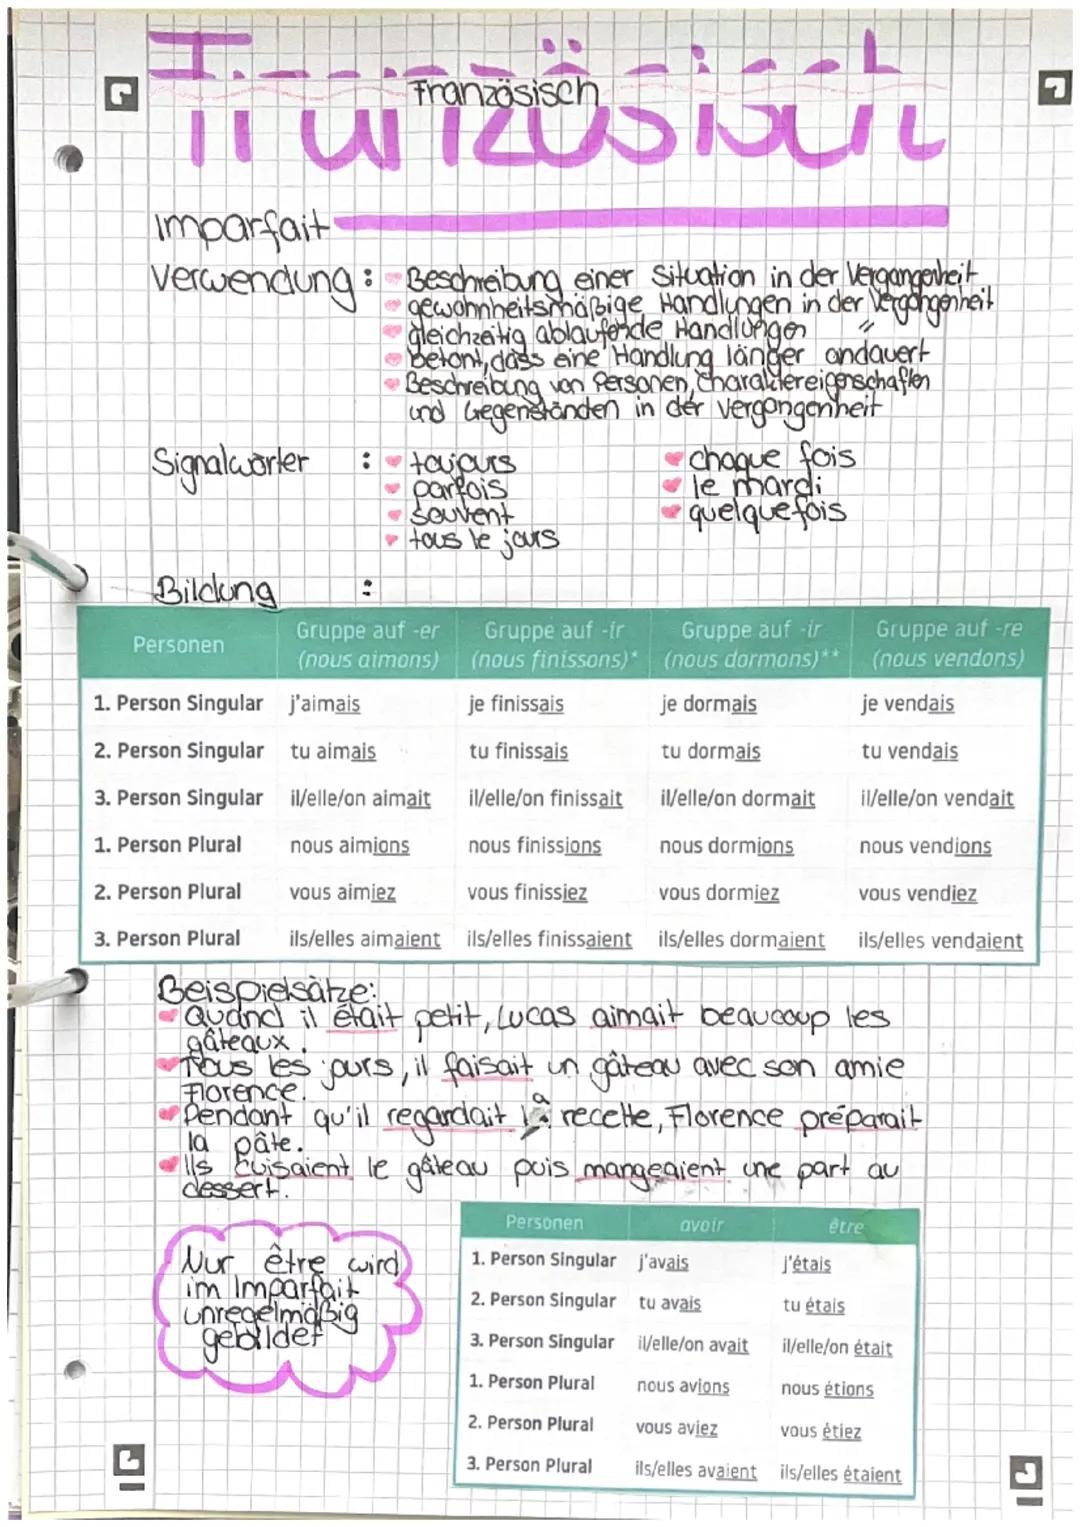 Französisch
Französisch
Imparfait
Verwendung : Beschreibung einer Situation in der Vergangenheit
gewohnheitsmäßige Handlungen in der Vergangenheit
gleichzeitig ablaufende Handlungen "
betont, dass eine Handlung länger andauert
Beschreibung von Personen, Charaktereigenschaften
und Gegenständen in der Vergangenheit
Signalwörter : toujours chaque fois
parfois le mardi
souvent quelquefois
tous le jours
Bildung :
Personen Gruppe auf -er (nous aimons) Gruppe auf -ir (nous finissons)* Gruppe auf -ir (nous dormons)** Gruppe auf -re (nous vendons)
1. Person Singular j'aimais je finissais je dormais je vendais
2. Person Singular tu aimais tu finissais tu dormais tu vendais
3. Person Singular il/elle/on aimait il/elle/on finissait il/elle/on dormait il/elle/on vendait
1. Person Plural nous aimions nous finissions nous dormions nous vendions
2. Person Plural vous aimiez vous finissiez vous dormiez vous vendiez
3. Person Plural ils/elles aimaient ils/elles finissaient ils/elles dormaient ils/elles vendaient
Beispielsätze:
Quand il était petit, Lucas aimait beaucoup les
gâteaux.
Tous les jours, il faisait un gâteau avec son amie
Florence.
Pendant qu'il regardait la recette, Florence préparait
la pâte.
Ils cuisaient le gâteau puis mangeaient une part au
dessert.
Nur être wird
im Imparfait
unregelmäßig
gebildet
Personen avoir être
1. Person Singular j'avais j'étais
2. Person Singular tu avais tu étais
3. Person Singular il/elle/on avait il/elle/on était
1. Person Plural nous avions nous étions
2. Person Plural vous aviez vous étiez
3. Person Plural ils/elles avaient ils/elles étaient